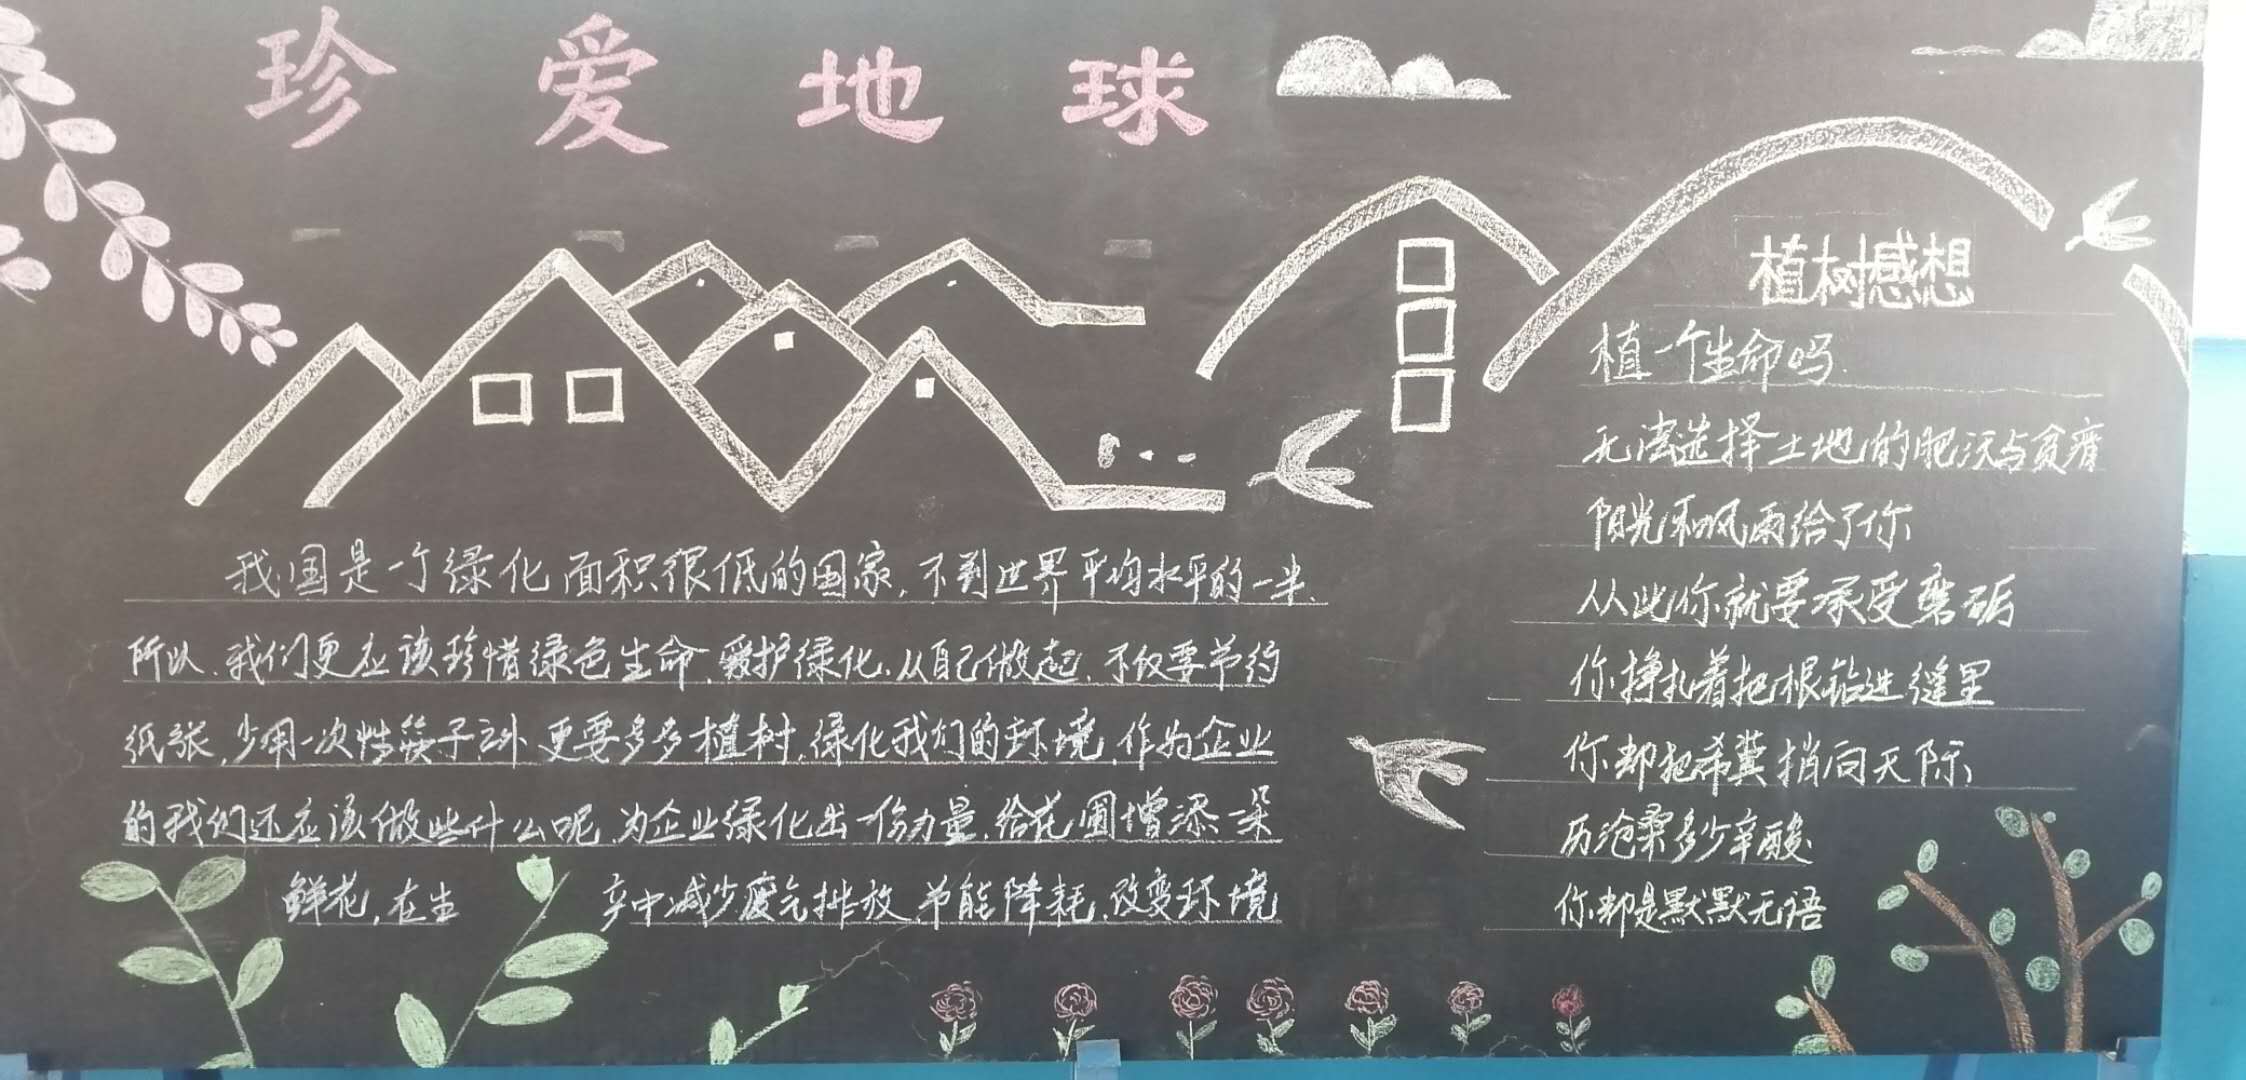 珍爱地球
我国是一个绿化面积很低的国家,不到世界平均水平的一半.
所以,我们更应该珍惜绿色生命,爱护绿化,从自己做起,不仅要节约
纸张,少用一次性筷子之外,更要多多植树,绿化我们的环境,作为企业
的我们还应该做些什么呢,为企业绿化出一份力量,给花圃增添一朵
鲜花,在生产中减少废气排放,节能降耗,改变环境
植树感想
植一个生命吗
无法选择土地的肥沃与贫瘠
阳光和风雨给了你
从此你就要承受磨砺
你挣扎着把根钻进缝里
你却把希冀捎向天际
历沧桑多少辛酸
你却是默默无语